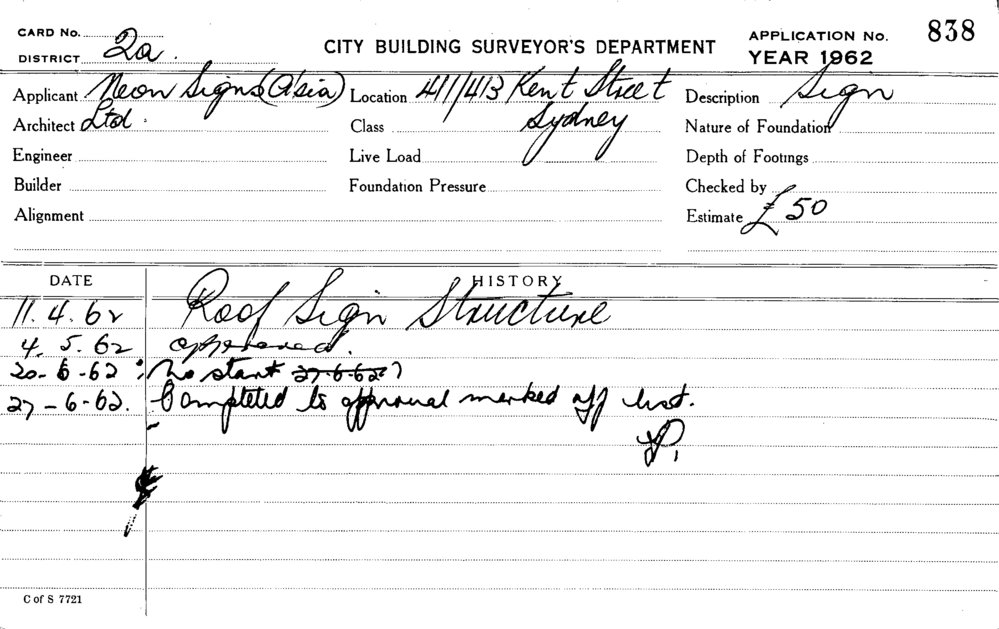 CARD No.
DISTRICT 2a.
CITY BUILDING SURVEYOR'S DEPARTMENT
APPLICATION No. 838
YEAR 1962
Applicant Neon Signs (A'sia) Location 411/413 Kent Street Description Sign
Architect Ltd. Class Sydney Nature of Foundation
Engineer Live Load Depth of Footings
Builder Foundation Pressure Checked by
Alignment Estimate £50
DATE HISTORY
11.4.62 Roof Sign Structure
4.5.62 approved.
20-6-62 : No start 27-6-62?
27-6-62. Completed to approval marked off list.
C of S 7721